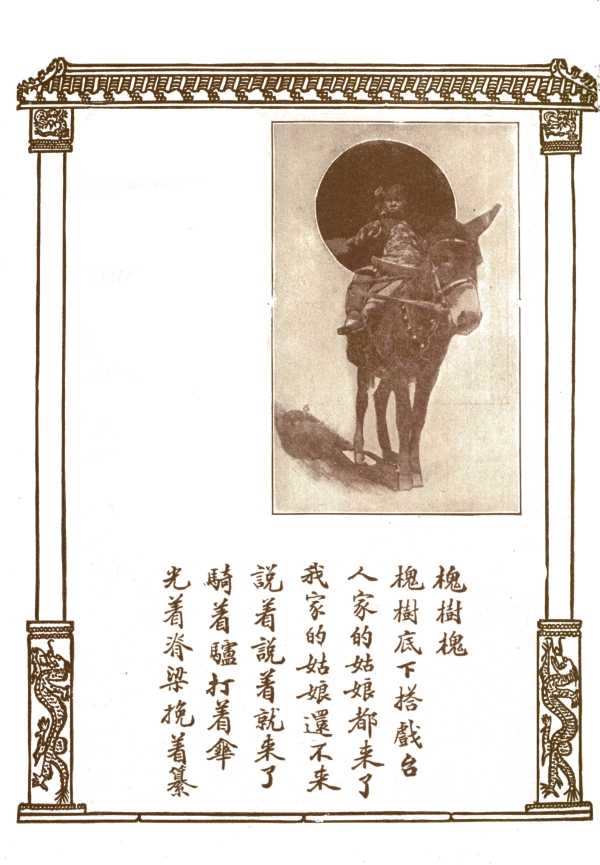 槐樹槐
槐樹底下搭戲台
人家的姑娘都来了
我家的姑娘還不来
説着説着就来了
騎着驢打着傘
光着脊梁挽着纂